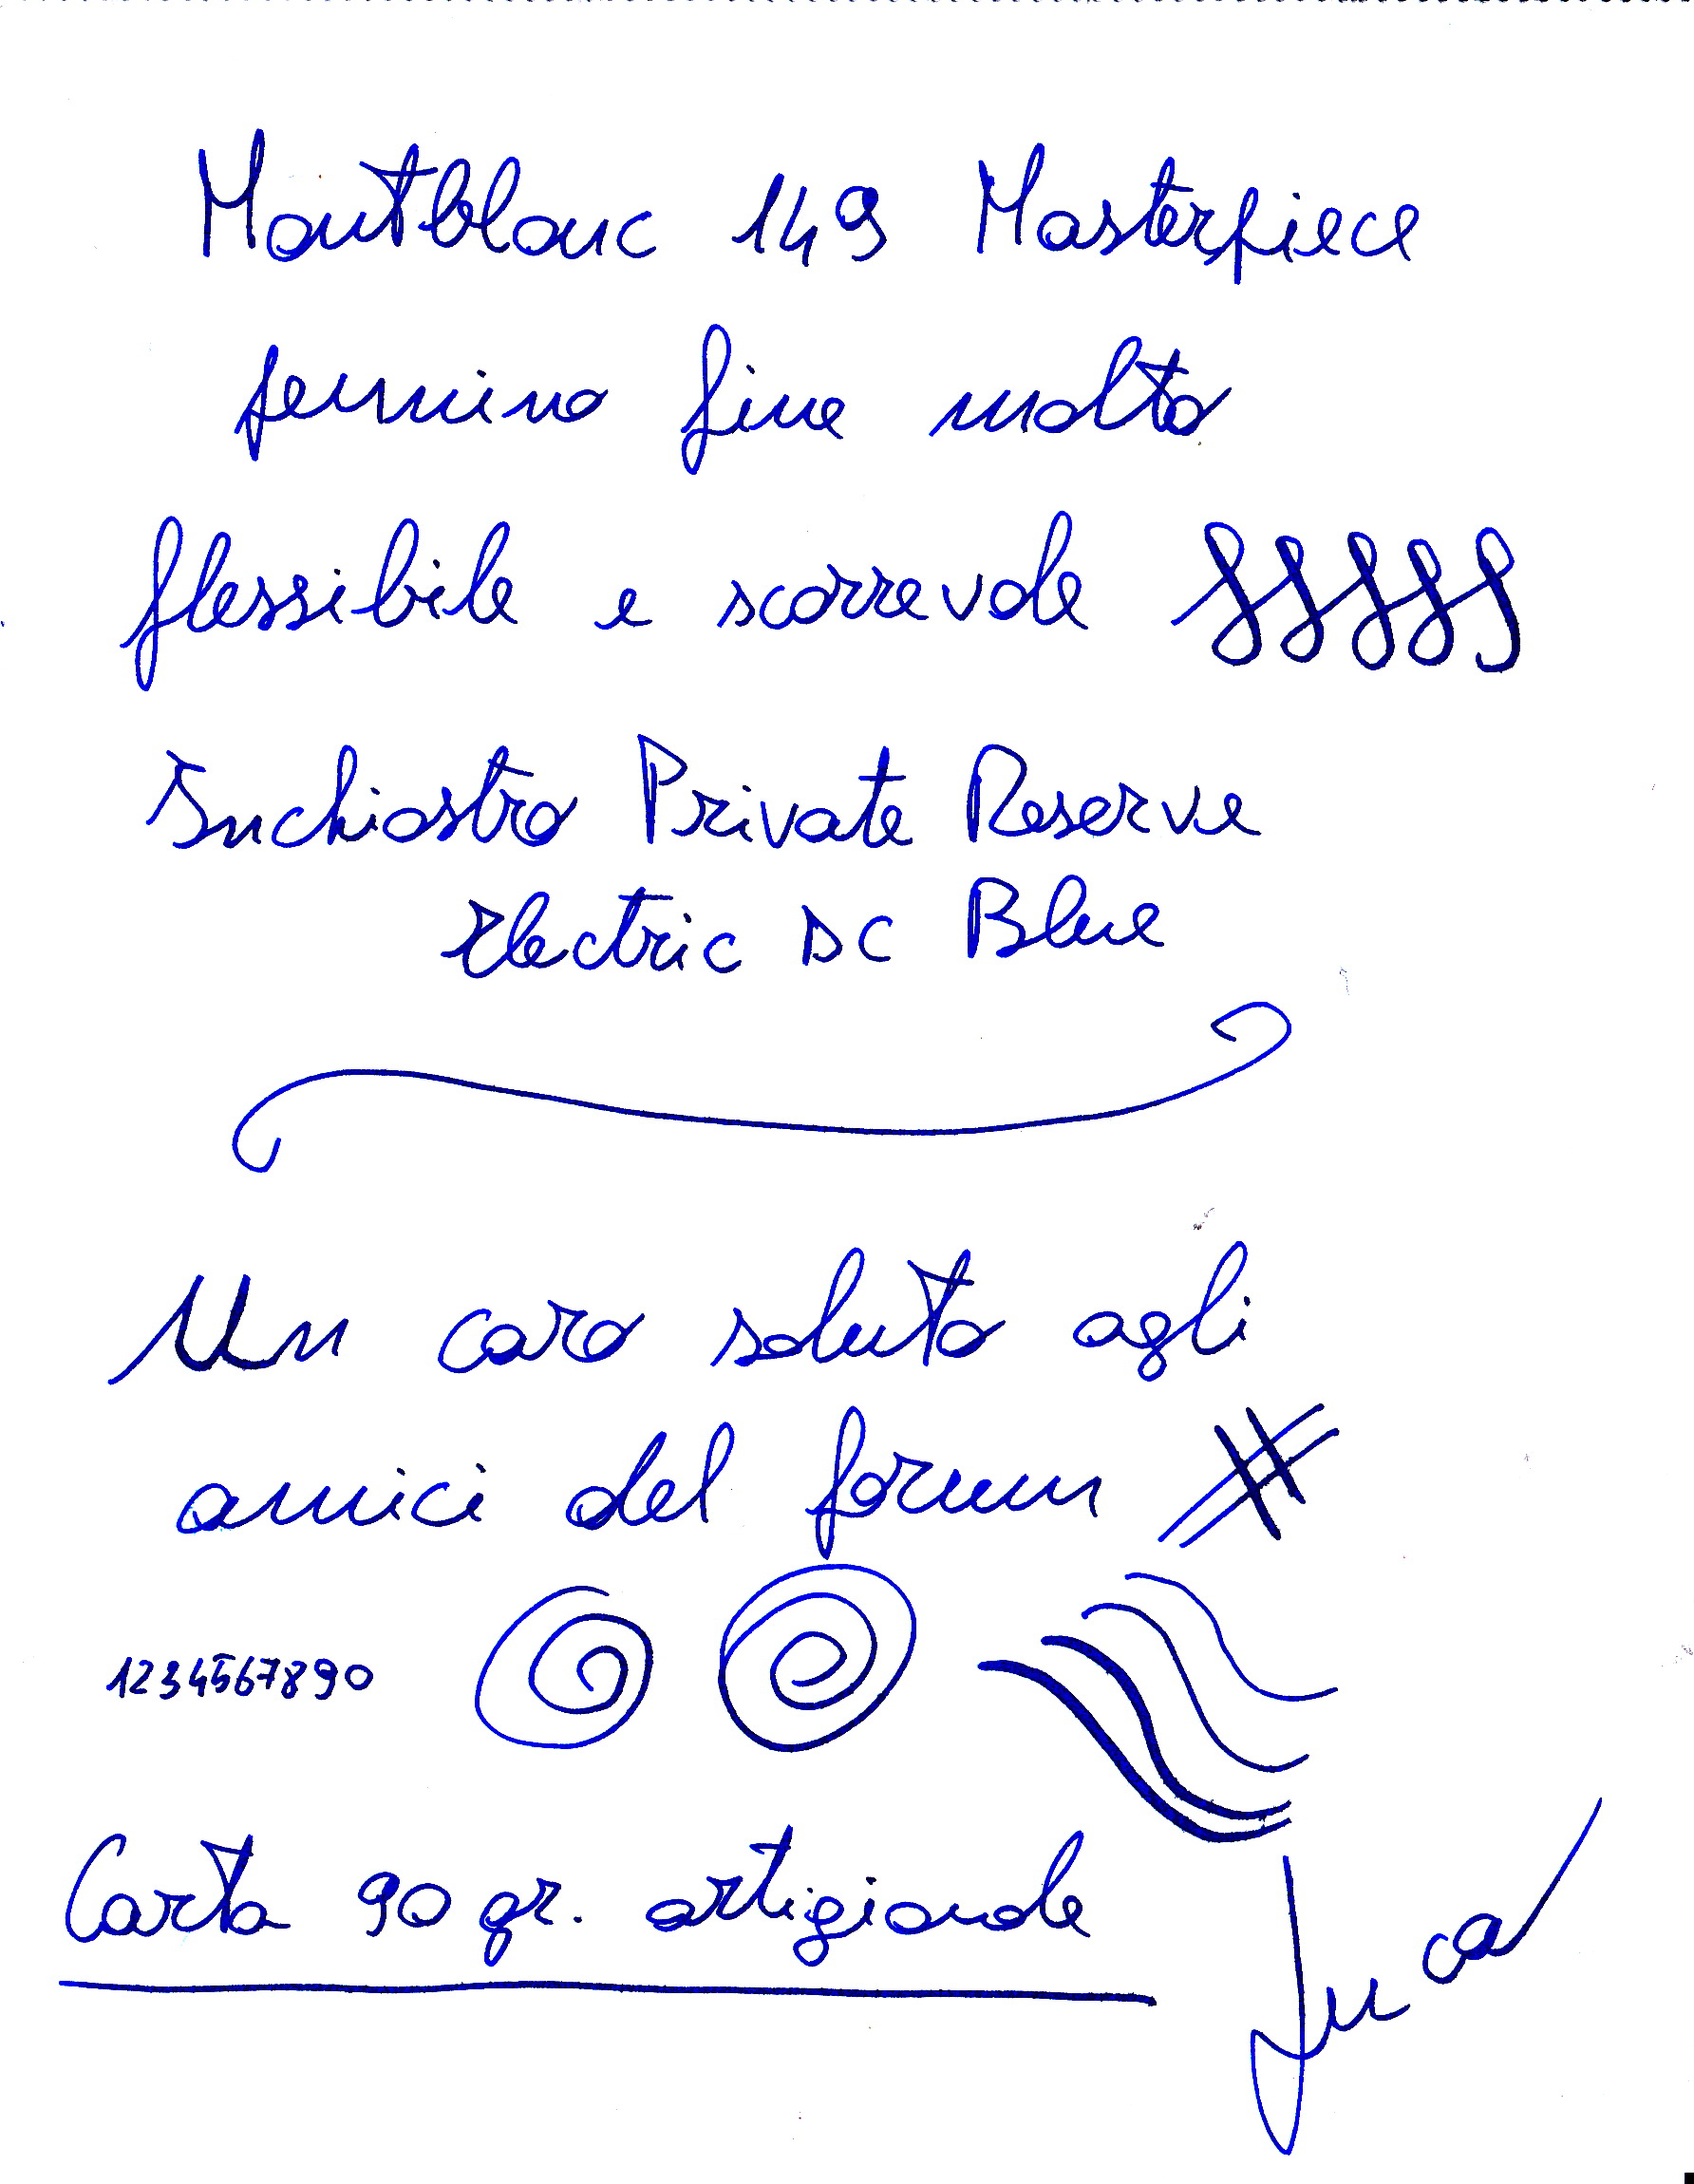 Montblanc 149 Masterpiece
pennino fine molto
flessibile e scorrevole
Inchiostro Private Reserve
Electric DC Blue
Un caro saluto agli
amici del forum #
1234567890
Carta 90 gr. artigianale
Luca